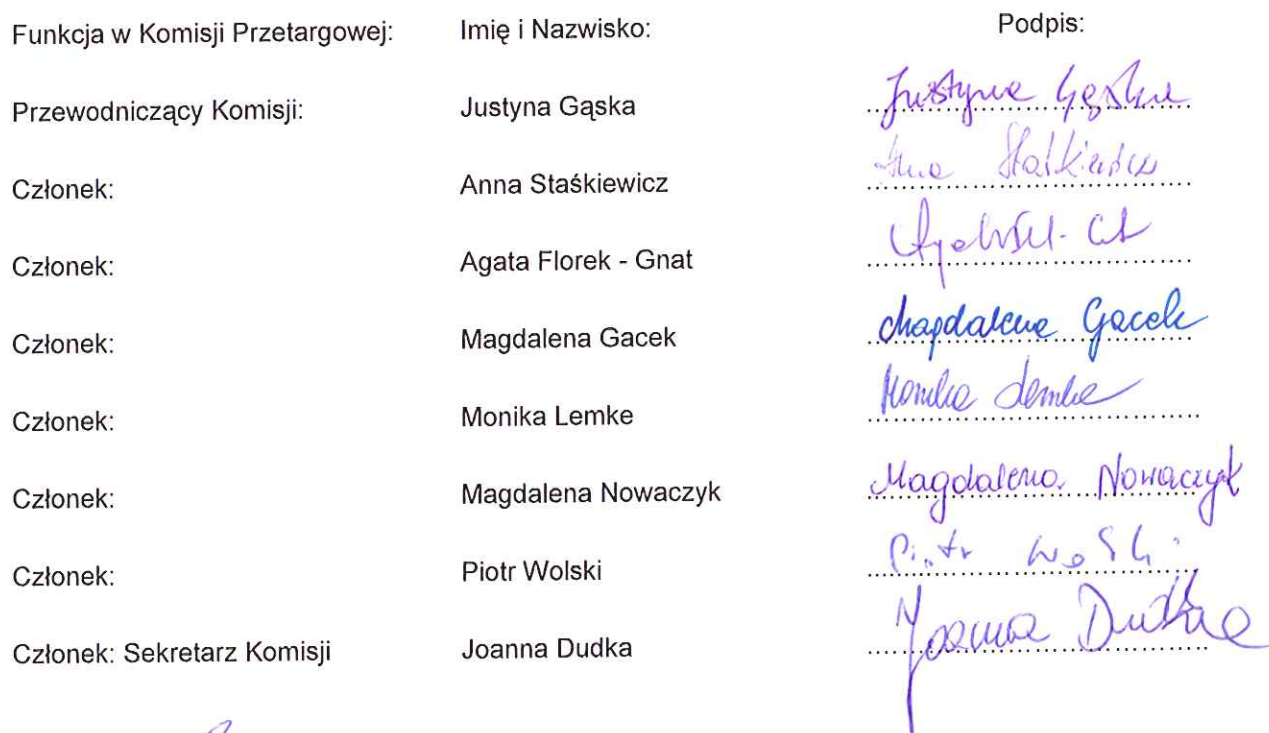 Funkcja w Komisji Przetargowej: Imię i Nazwisko: Podpis:
Przewodniczący Komisji: Justyna Gąska Justyna Gąska
Członek: Anna Staśkiewicz Anna Staśkiewicz
Członek: Agata Florek - Gnat
Członek: Magdalena Gacek Magdalena Gacek
Członek: Monika Lemke Monika Lemke
Członek: Magdalena Nowaczyk Magdalena Nowaczyk
Członek: Piotr Wolski Piotr Wolski
Członek: Sekretarz Komisji Joanna Dudka Joanna Dudka